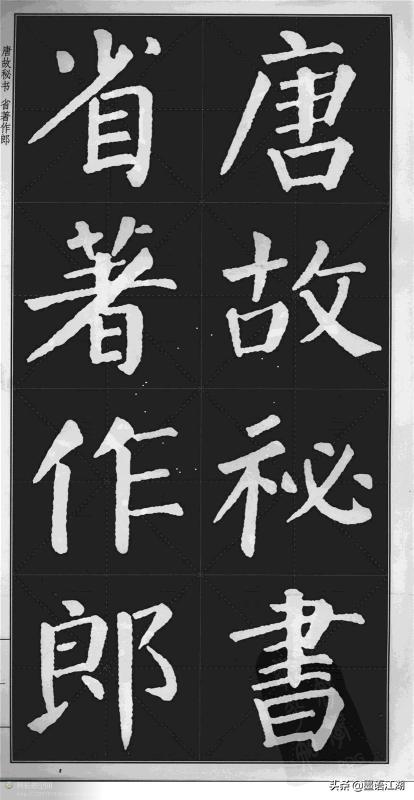 唐故祕書
省著作郎
唐故秘书 省著作郎
头条 @墨语江湖